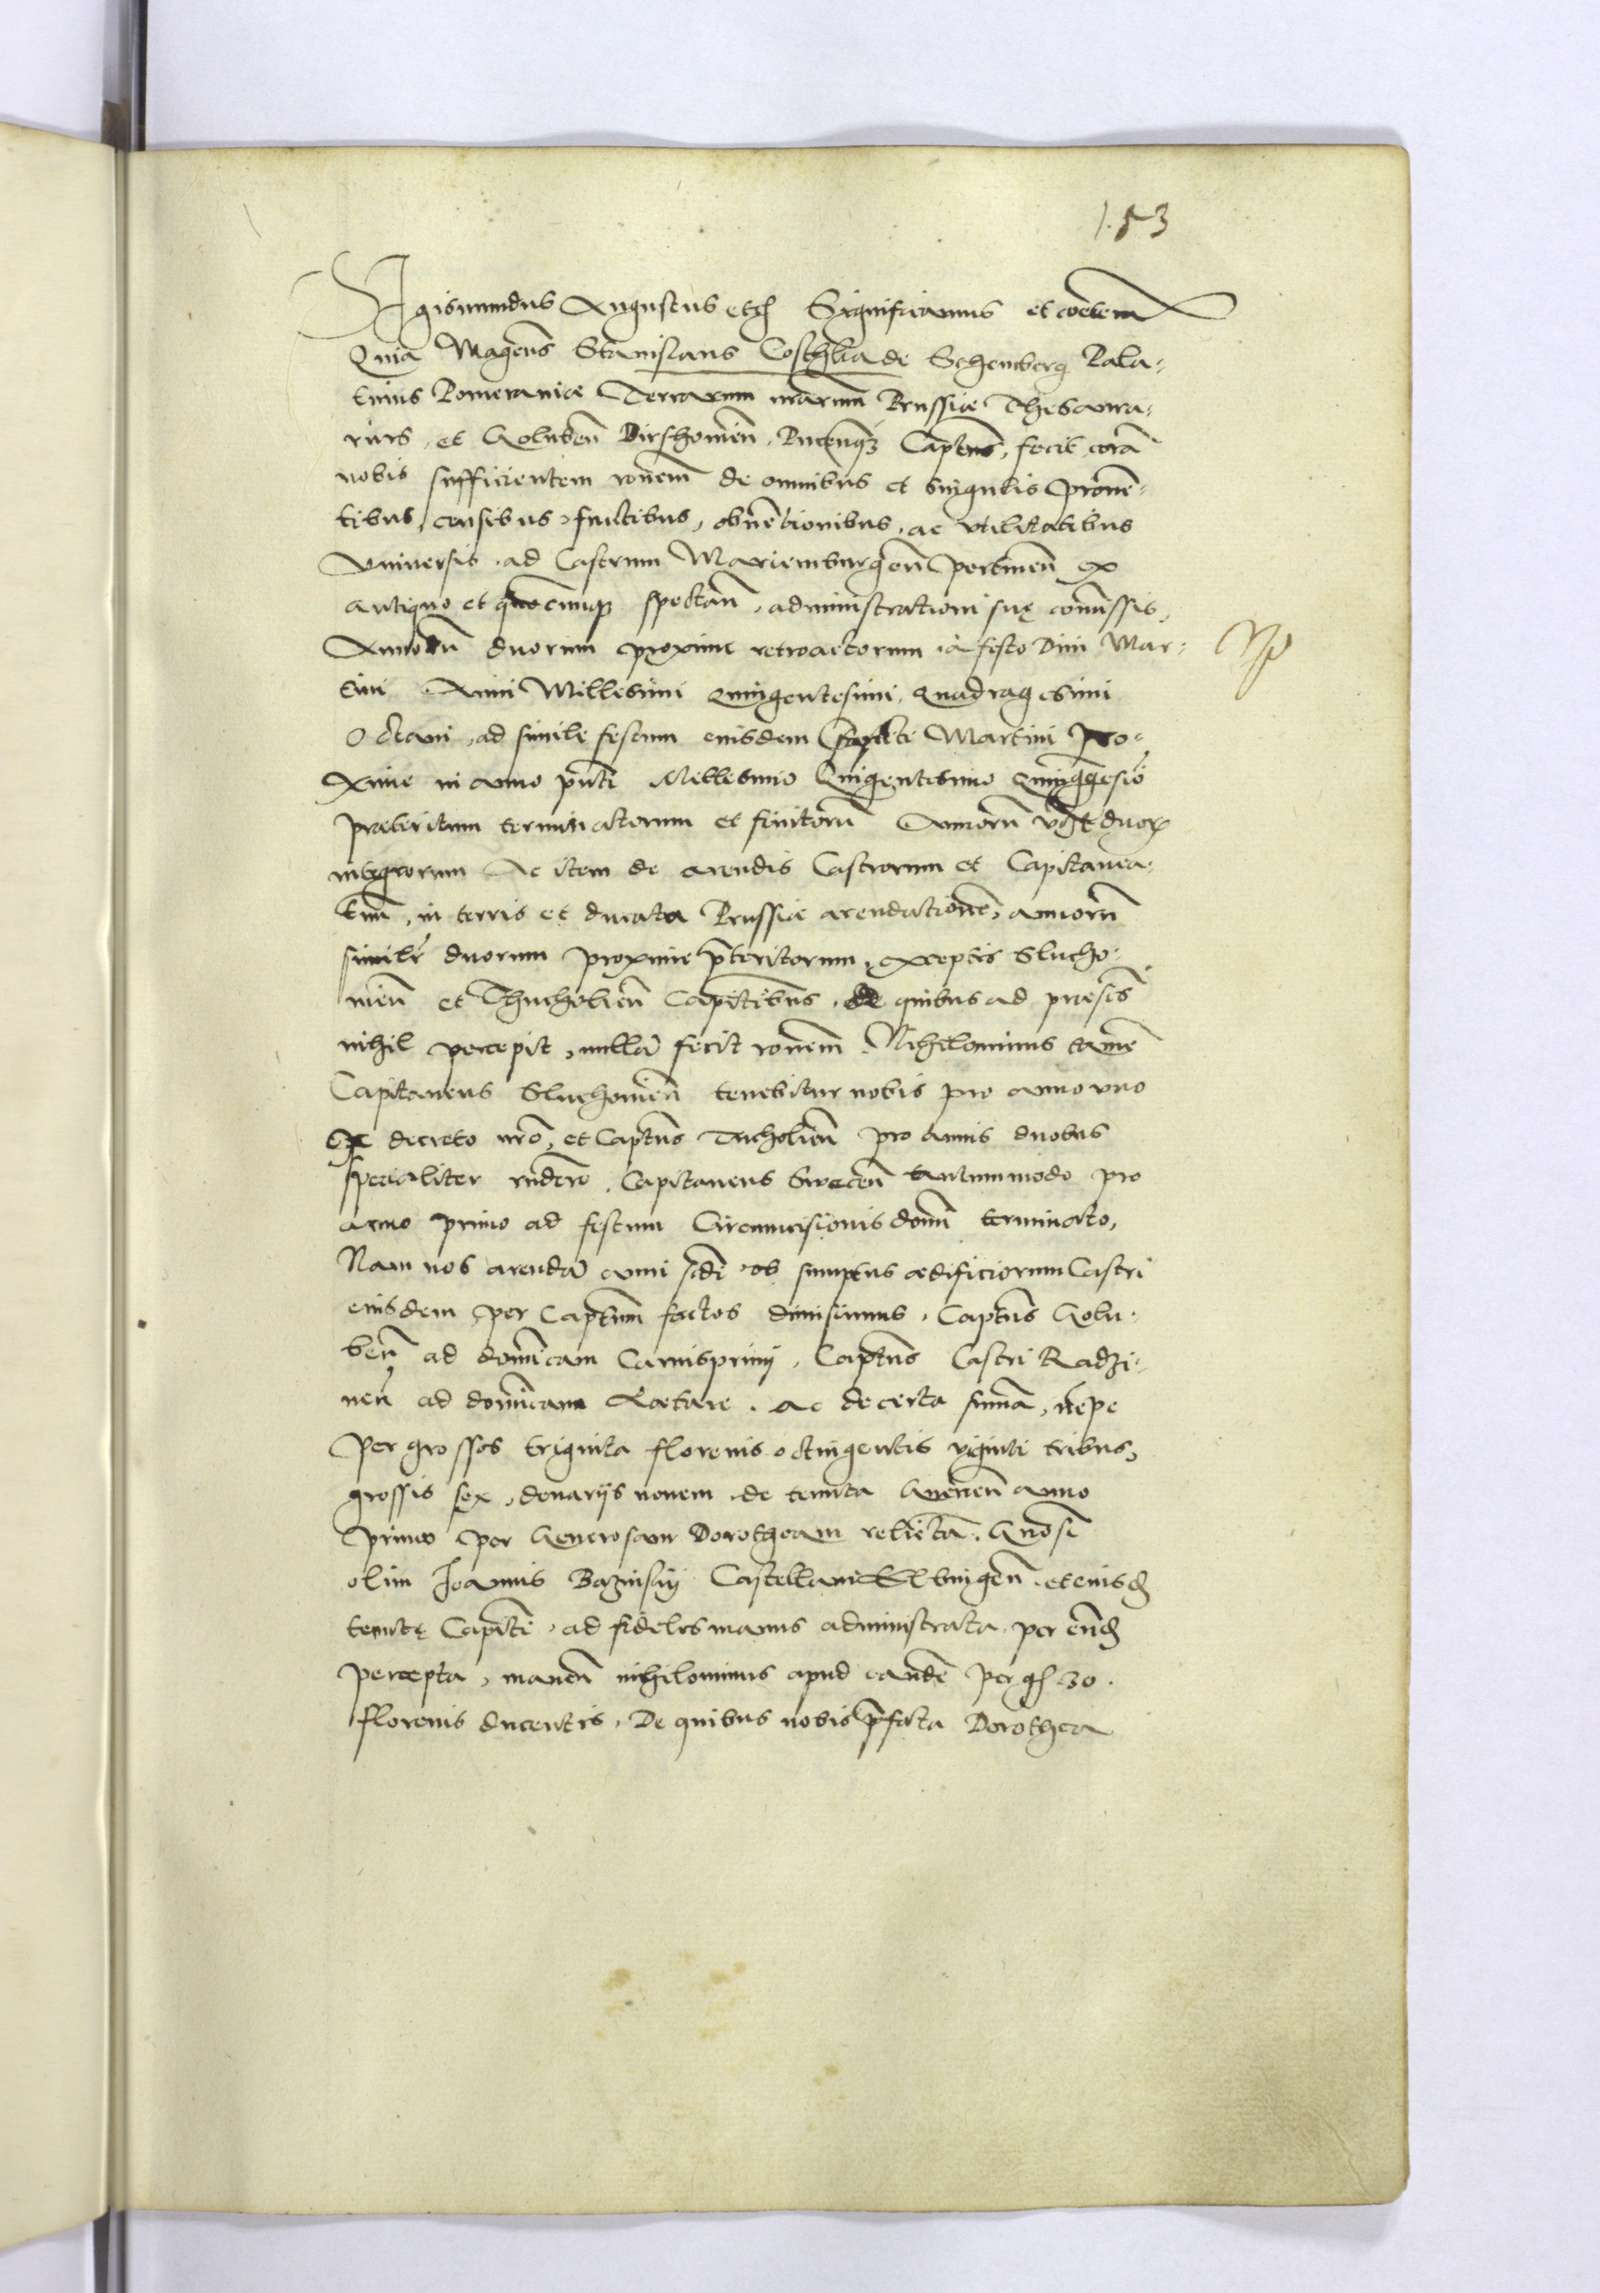 153
Sigismundus Augustus etc Significamus et coetera
Quia Magcus Stanislaus Costhka de Schemberg Pala-
tinus Pomeraniae Terrarum nrarum Prussiae Thesaura-
rius, et Goluben Dirshovien, Pucenqz Captus, fecit cora
nobis sufficientem ronem de omnibus et singulis proven-
tibus, censibus, fructibus, obventionibus, ac utilitatibus
universis, ad Castrum Mariemburgen pertinen ex
antiquo et quocunqz spectan, administrationi suę comissis,
Annoru duorum proxime retroactorum, a festo Divi Mar-
tini Anni Millesimi quingentesimi, quadragesimi
Octavi, ad simile festum eiusdem Sancti Martini pro-
xime in anno pnti Millesimo Quingentesimo quinqgesio
praeteritum terminatorum et finitoru Annoru vdt duor
integrorum Ac item de arendis Castrorum et Capitanea-
tuu, in terris et ducatu Prussiae arendatione, annoru
similr duorum proxime pteritorum, exceptis Slucho-
vien et Thucholien Capitibus, de quibus ad praesens
nihil percepit, nulla fecit ronem. Nihilominus tame
Capitaneus Sluchovien tenebitur nobis pro anno uno
Ex decreto nro, et Captus Tucholien pro annis duobus
specialiter rndere. Capitaneus Swecen tantummodo pro
anno primo ad festum Circumcisionis domi terminato,
Nam nos arenda anni scdi ob sumptus aedificiorum Castri
eiusdem per Captum factos dimisimus, Captus Golu-
ben ad domicam Carnisprivij, Captus Castri Radzi-
nen ad domicam Laetare. ac de certa suma, nepe
per grossos triginta florenis octingentis viginti tribus,
grossis sex, denarijs novem de tenuta Gnenen anno
primo per Generosam Dorotheam relicta, Gnosi
olim Joannis Bazinsky Castellani Elbingen, et eiusd
tenutę Capiti, ad fideles manus administrata, per eand
percepta, manen nihilominus apud eande per gs 30.
florenis ducentis, De quibus nobis pfata Dorothea